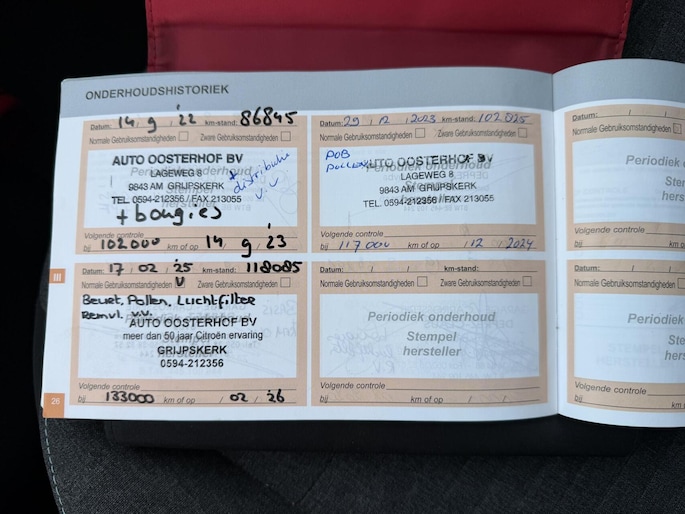 ONDERHOUDSHISTORIEK
Datum: 14 / 9 / '22 km-stand: 86845
Normale Gebruiksomstandigheden Zware Gebruiksomstandigheden
AUTO OOSTERHOF BV
LAGEWEG 8
9843 AM GRIJPSKERK
TEL. 0594-212356 / FAX 213055
Periodiek onderhoud
Stempel
hersteller
+ bougies
+ distributie
v.v
Volgende controle
bij 102000 km of op 14 / 9 / '23
Datum: 29 / 12 / 2023 km-stand: 102025
Normale Gebruiksomstandigheden Zware Gebruiksomstandigheden
POB
POLLEN
AUTO OOSTERHOF BV
LAGEWEG 8
9843 AM GRIJPSKERK
TEL. 0594-212356 / FAX 213055
Periodiek onderhoud
Stempel
hersteller
Volgende controle
bij 117000 km of op / 12 / 2024
Datum: / /
Normale Gebruiksomstandigheden
Periodiek
Stem
herst
Volgende controle
bij km of op
III
Datum: 17 / 02 / '25 km-stand: 118085
Normale Gebruiksomstandigheden v Zware Gebruiksomstandigheden
Beurt, Pollen, Luchtfilter
Remvl. v.v.
AUTO OOSTERHOF BV
meer dan 50 jaar Citroën ervaring
GRIJPSKERK
0594-212356
Volgende controle
bij 133000 km of op / 02 / '26
Datum: / / km-stand:
Normale Gebruiksomstandigheden Zware Gebruiksomstandigheden
Periodiek onderhoud
Stempel
hersteller
Volgende controle
bij km of op / /
Datum: / /
Normale Gebruiksomstandigheden
Periodie
Ste
hers
Volgende controle
bij km of op
26